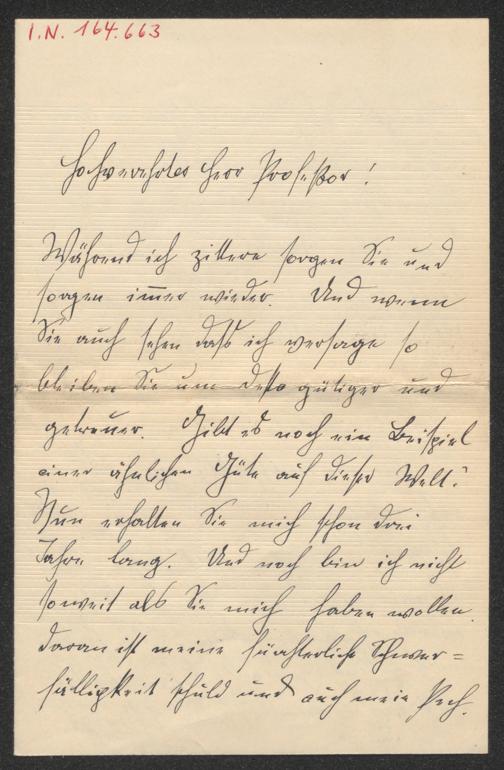 I.N. 164.663
Hochverehrter Herr Professor!
Während ich zittere sorgen Sie und
sorgen immer wieder. Und wenn
Sie auch sehen daß ich versage so
bleiben Sie um desto gütiger und
getreuer. Gibt es noch ein Beispiel
einer ähnlichen Güte auf dieser Welt?
Nun erhalten Sie mich schon drei
Jahre lang. Und noch bin ich nicht
soweit als Sie mich haben wollen.
daran ist meine fürchterliche Schwer=
fälligkeit schuld und auch mein Pech.